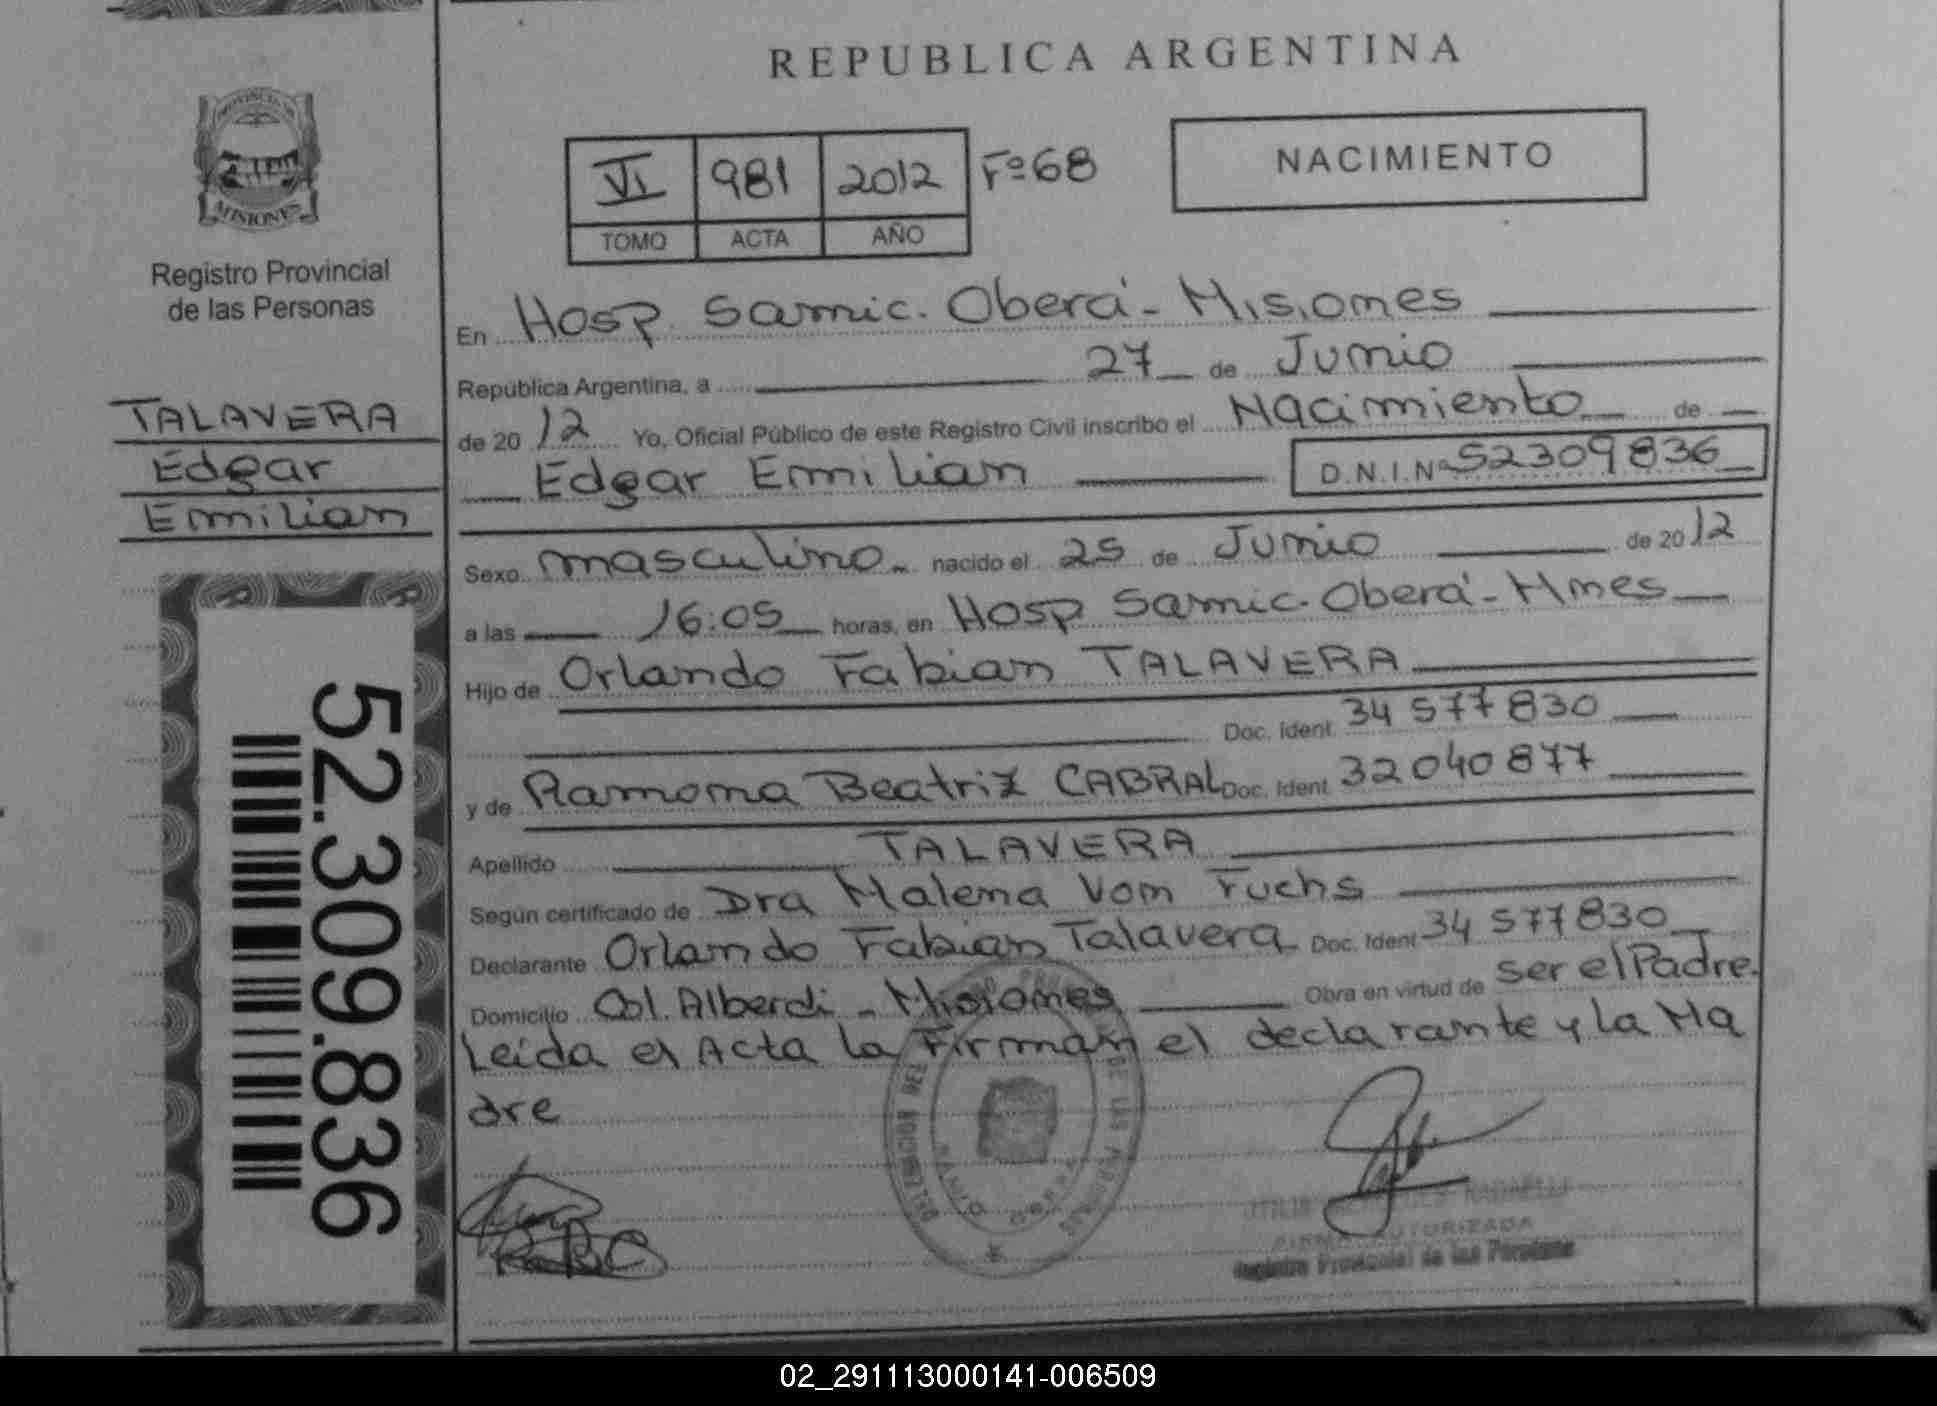 REPUBLICA ARGENTINA
PROVINCIA DE
MISIONES
Registro Provincial
de las Personas
VI 981 2012 Fº68
TOMO ACTA AÑO
NACIMIENTO
TALAVERA
Edgar
Emilian
52.309.836
En Hosp. Samic. Oberá - Misiones
Republica Argentina, a 27 de Junio
de 2012 Yo, Oficial Público de este Registro Civil inscribo el Nacimiento de
Edgar Emilian D.N.I.Nº 52309836
Sexo masculino nacido el 25 de Junio de 2012
a las 16:05 horas, en Hosp Samic. Oberá - Mnes
Hijo de Orlando Fabian TALAVERA
Doc. Ident. 34 577 830
y de Ramona Beatriz CABRAL Doc. Ident. 32 040 877
Apellido TALAVERA
Según certificado de Dra Malena Von Fuchs
Declarante Orlando Fabian Talavera Doc. Ident 34 577 830
Domicilio Col. Alberdi - Misiones Obra en virtud de ser el Padre.
Leida el Acta la Firman el declarante y la Ma
dre
DELEGACION DEL DE LAS PERSONAS
AUTORIZADA
Registro Provincial de las Personas
02_291113000141-006509